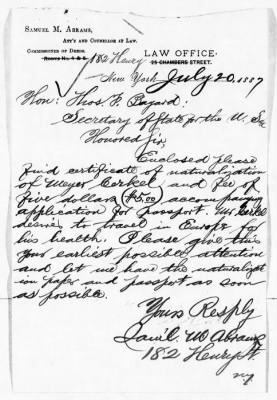 SAMUEL M. ABRAMS,
ATT'Y AND COUNSELLOR AT LAW.
COMMISSIONER OF DEEDS.
LAW OFFICE,
25 CHAMBERS STREET.
182 Henry
New York July 20, 1887
Hon: Thos. F. Bayard:
Secretary of State for the U. S.
Honored Sir,
Enclosed please
find certificate of naturalization
of Meyer and fee of
five dollars ($5.00) accompanying
application for passport. Mr
desires to travel in Europe for
his health. Please give this
your earliest possible attention
and let me have the naturalizat
ion paper and passport as soon
as possible.
Yours Resply
Sam'l. M Abrams
182 Henry St.
NY